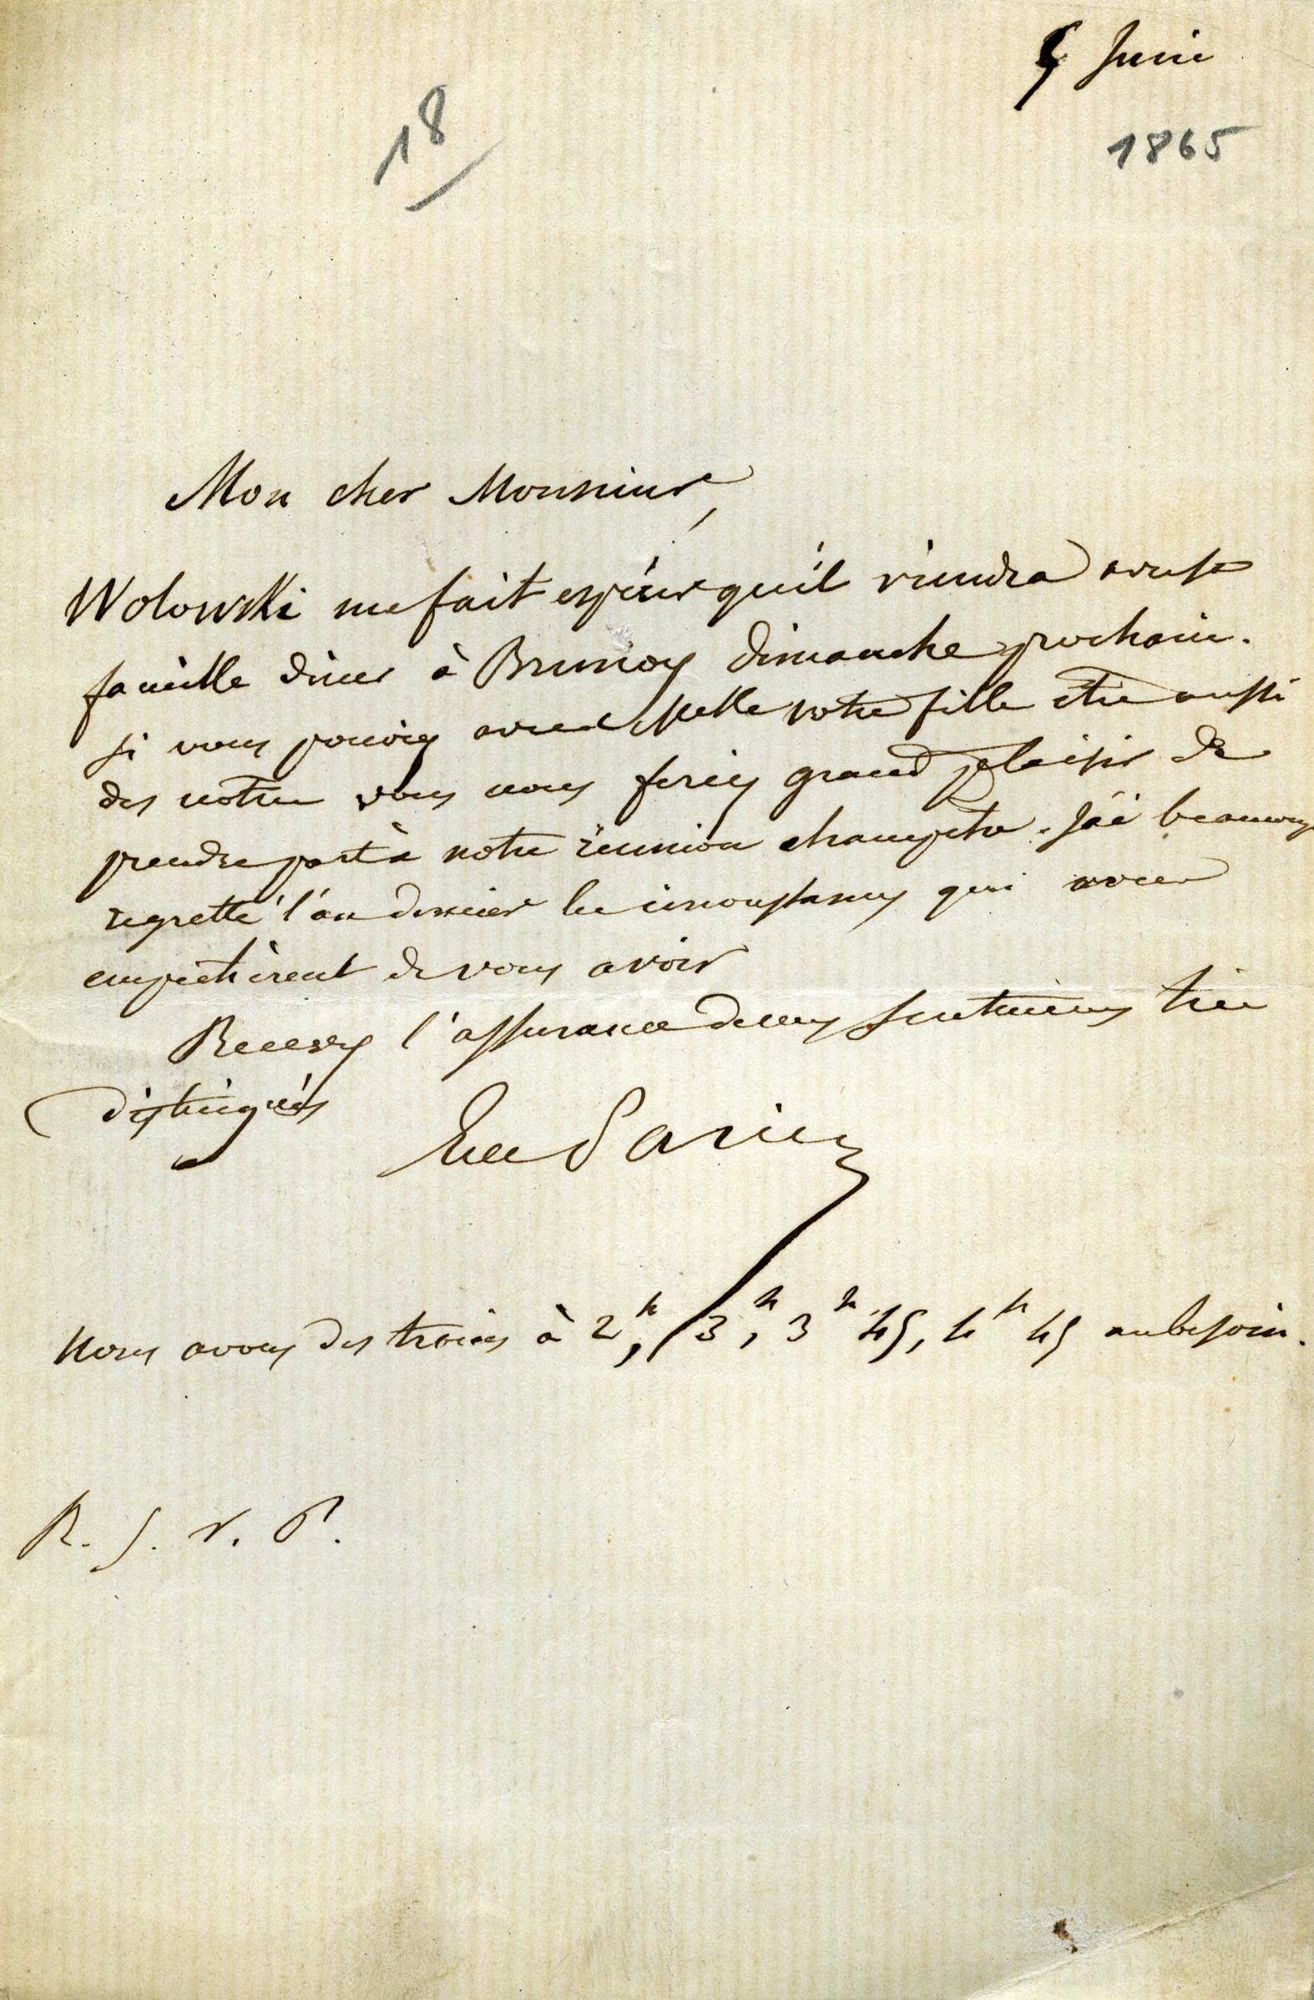 5 Juin
1865
18
Mon cher Monsieur,
Wolowski me fait espérer qu'il viendra avec sa
famille diner à Brunoy dimanche prochain.
si vous pouviez avec Melle votre fille être aussi
des notres vous nous feriez grand plaisir de
prendre part à notre réunion champetre. J'ai beaucoup
regretté l'an dernier les circonstances qui
empêchèrent de vous avoir
Recevez l'assurance de mes sentimens très
distingués
Parieu
Nous avons des trains à 2h, 3h, 3h 45, 4h 45 au besoin.
R. S. V. P.